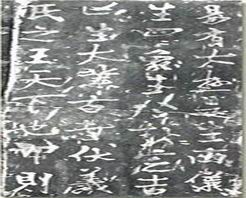 易有太極是生兩儀
生四象生八卦吉
凶生大業古者伏羲
氏之王天下也仰則